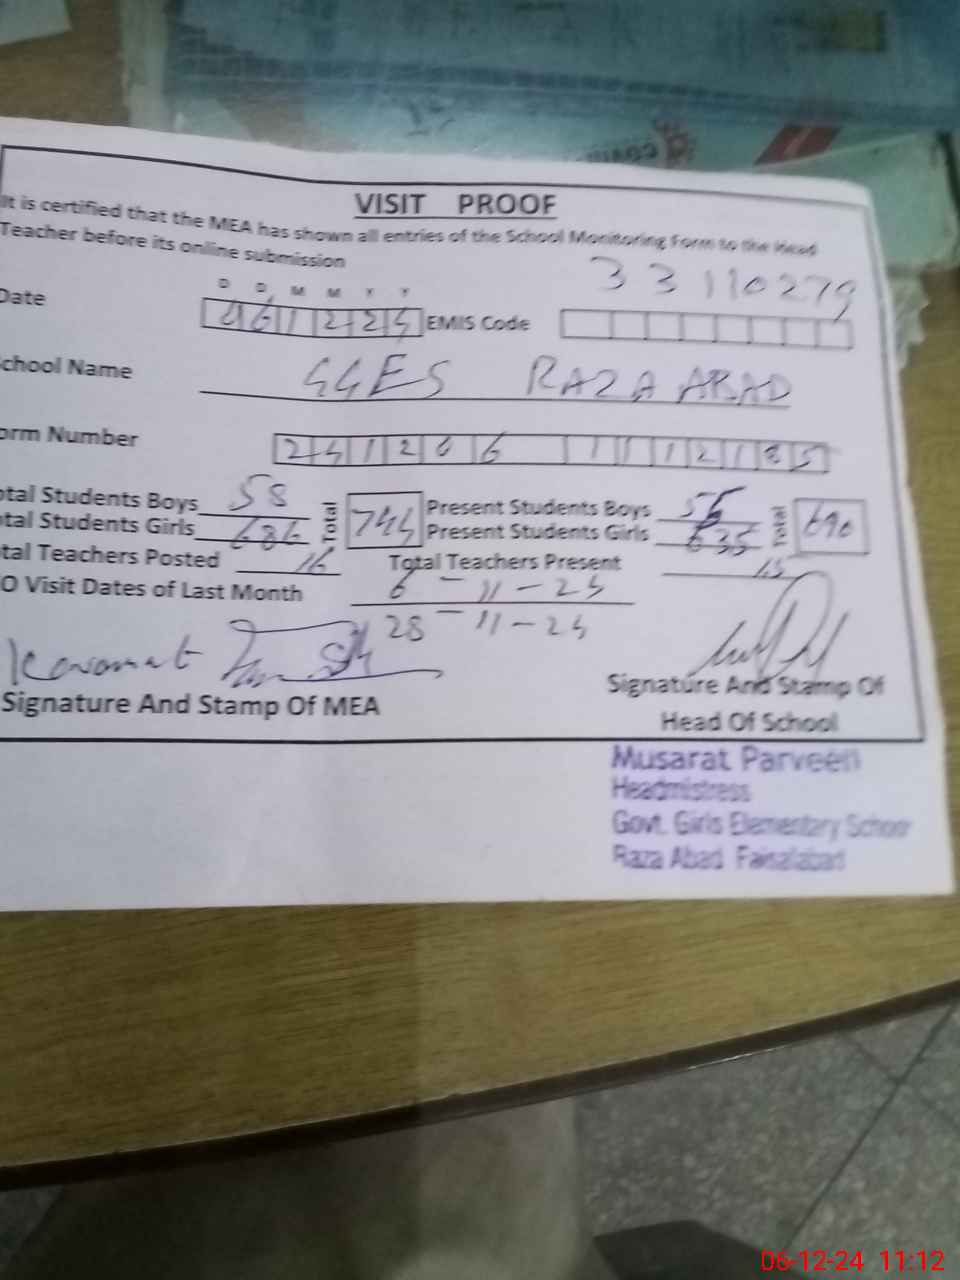 VISIT PROOF
It is certified that the MEA has shown all entries of the School Monitoring Form to the Head
Teacher before its online submission
33110279
D D M M Y Y
Date 061224 EMIS Code
School Name GGES RAZA ABAD
Form Number 241206 1112185
Total Students Boys 58 Total 744 Present Students Boys 55 Total 690
Total Students Girls 686 Present Students Girls 635
Total Teachers Posted 16 Total Teachers Present 15
O Visit Dates of Last Month 6-11-24
28-11-24
Karamat
Signature And Stamp Of MEA
Signature And Stamp Of
Head Of School
Musarat Parveen
Headmistress
Govt. Girls Elementary School
Raza Abad Faisalabad
06-12-24 11:12